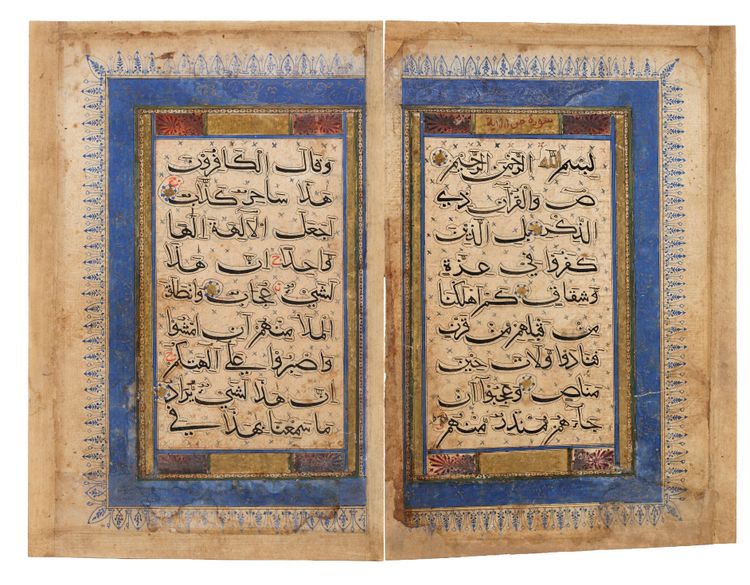 سورة
بسم الله الرحمن الرحيم
ص والقرآن ذي
الذكر بل الذين
كفروا في عزة
وشقاق كم اهلكنا
من قبلهم من قرن
فنادوا ولات حين
مناص وعجبوا ان
جاءهم منذر منهم
وقال الكافرون
هذا ساحر كذاب
اجعل الآلهة الها
واحدا ان هذا
لشيء عجاب وانطلق
الملأ منهم ان امشوا
واصبروا على آلهتكم
ان هذا لشيء يراد
ما سمعنا بهذا في